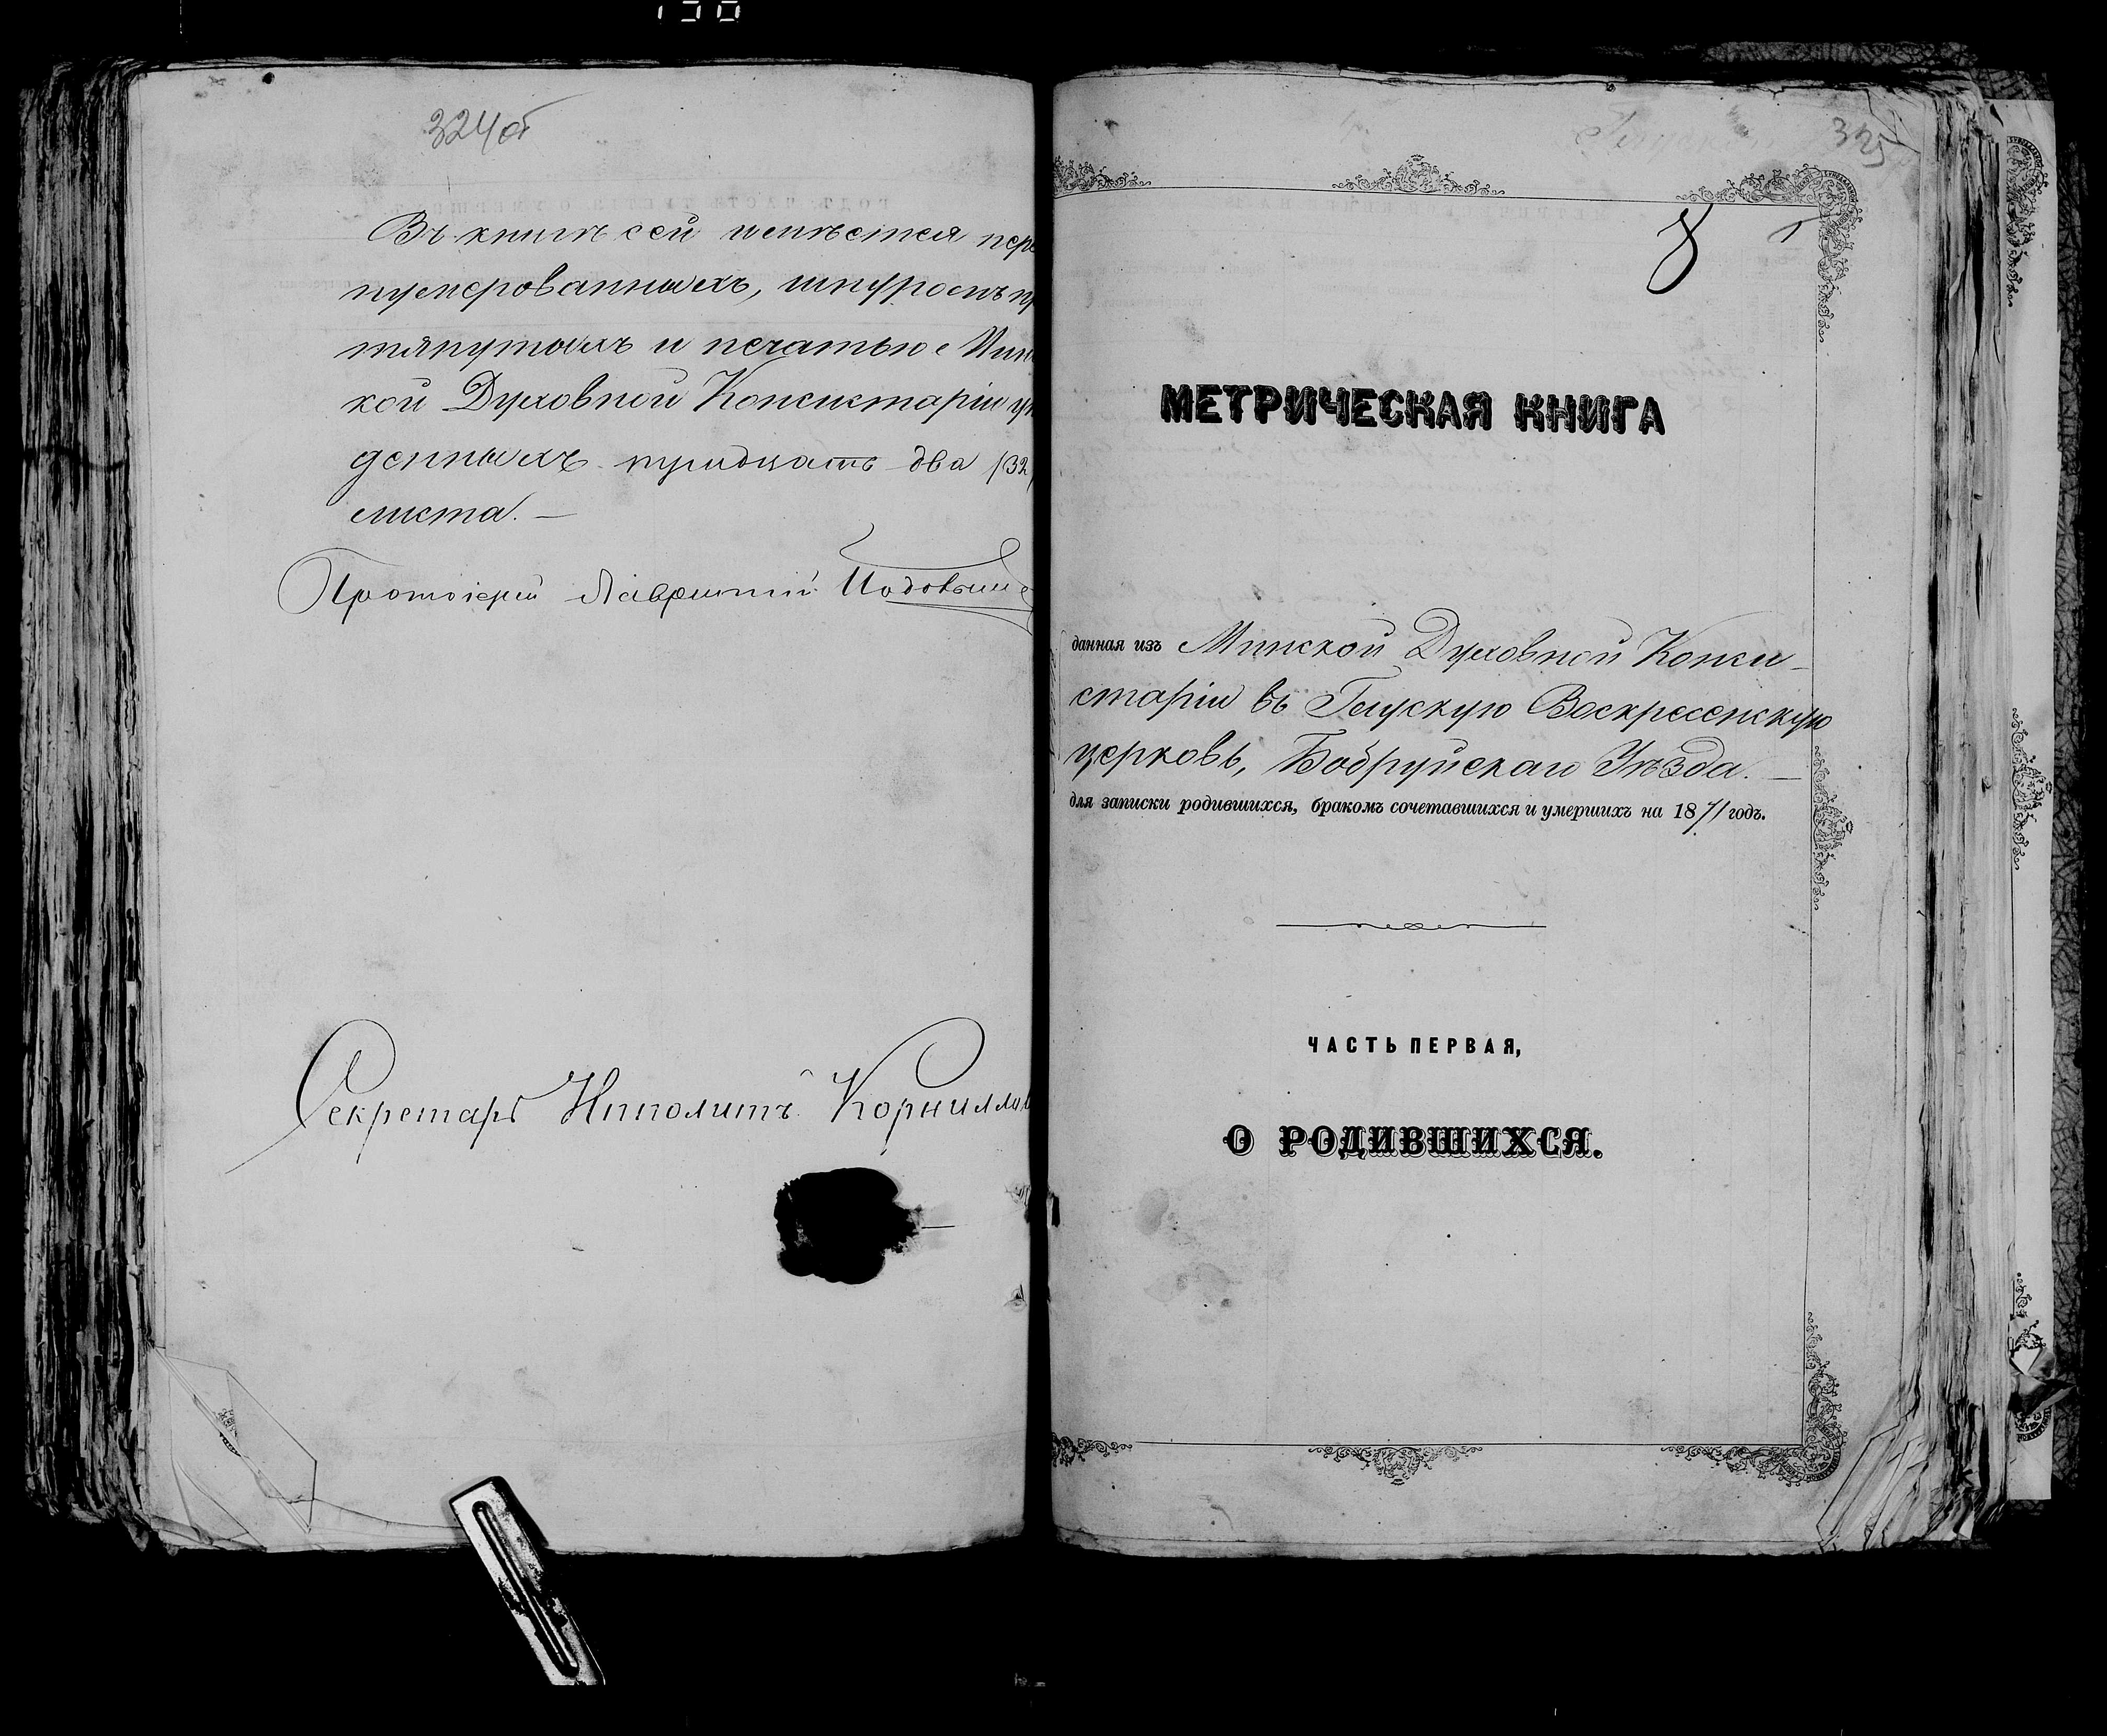 324об
Въ книгѣ сей имѣется пере
нумерованныхъ, шнуромъ пр
тянутыхъ и печатью Мин
кой Духовной Консисторіи ут
денныхъ тридцать два /32/
листа. —
Протоіерей Лаврентій
Секретарь Ипполитъ Корнилло
325
8 1
МЕТРИЧЕСКАЯ КНИГА
данная изъ Минской Духовной Конси-
сторіи въ Глускую Воскресенскую
церковь, Бобруйскаго Уѣзда. —
для записки родившихся, бракомъ сочетавшихся и умершихъ на 1871 годъ.
ЧАСТЬ ПЕРВАЯ,
О РОДИВШИХСЯ.